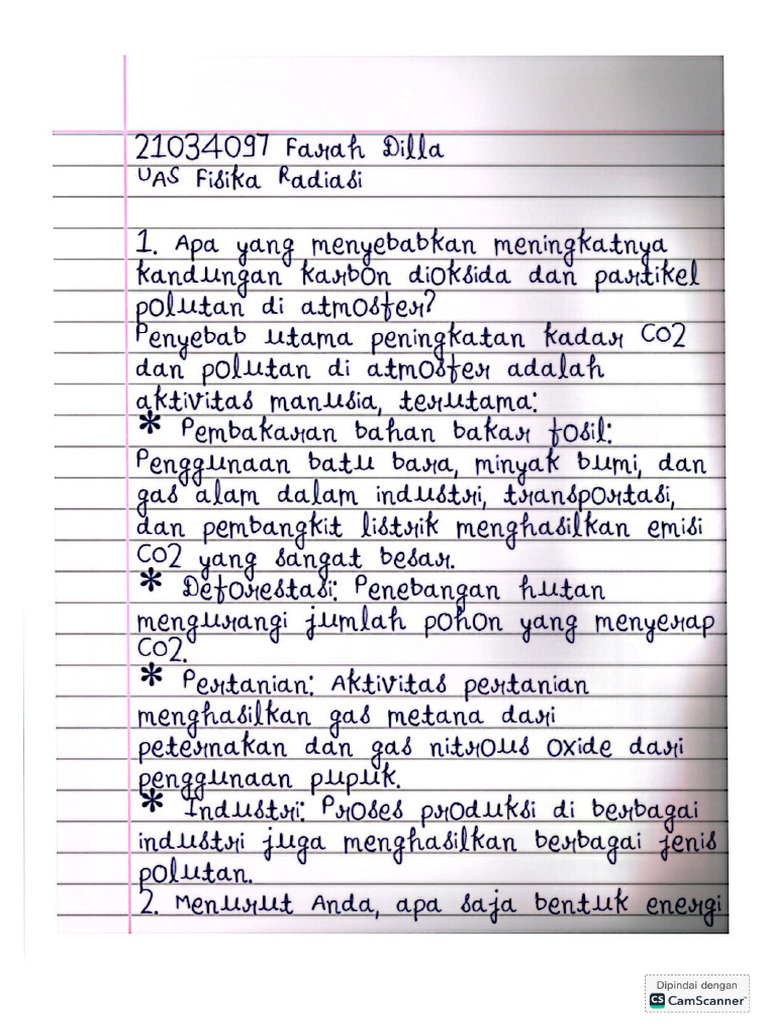 21034097 Farah Dilla
UAS Fisika Radiasi
1. Apa yang menyebabkan meningkatnya
kandungan karbon dioksida dan partikel
polutan di atmosfer?
Penyebab utama peningkatan kadar CO2
dan polutan di atmosfer adalah
aktivitas manusia, terutama:
* Pembakaran bahan bakar fosil:
Penggunaan batu bara, minyak bumi, dan
gas alam dalam industri, transportasi,
dan pembangkit listrik menghasilkan emisi
CO2 yang sangat besar.
* Deforestasi: Penebangan hutan
mengurangi jumlah pohon yang menyerap
CO2.
* Pertanian: Aktivitas pertanian
menghasilkan gas metana dari
peternakan dan gas nitrous oxide dari
penggunaan pupuk.
* Industri: Proses produksi di berbagai
industri juga menghasilkan berbagai jenis
polutan.
2. Menurut Anda, apa saja bentuk energi
Dipindai dengan
CS CamScanner